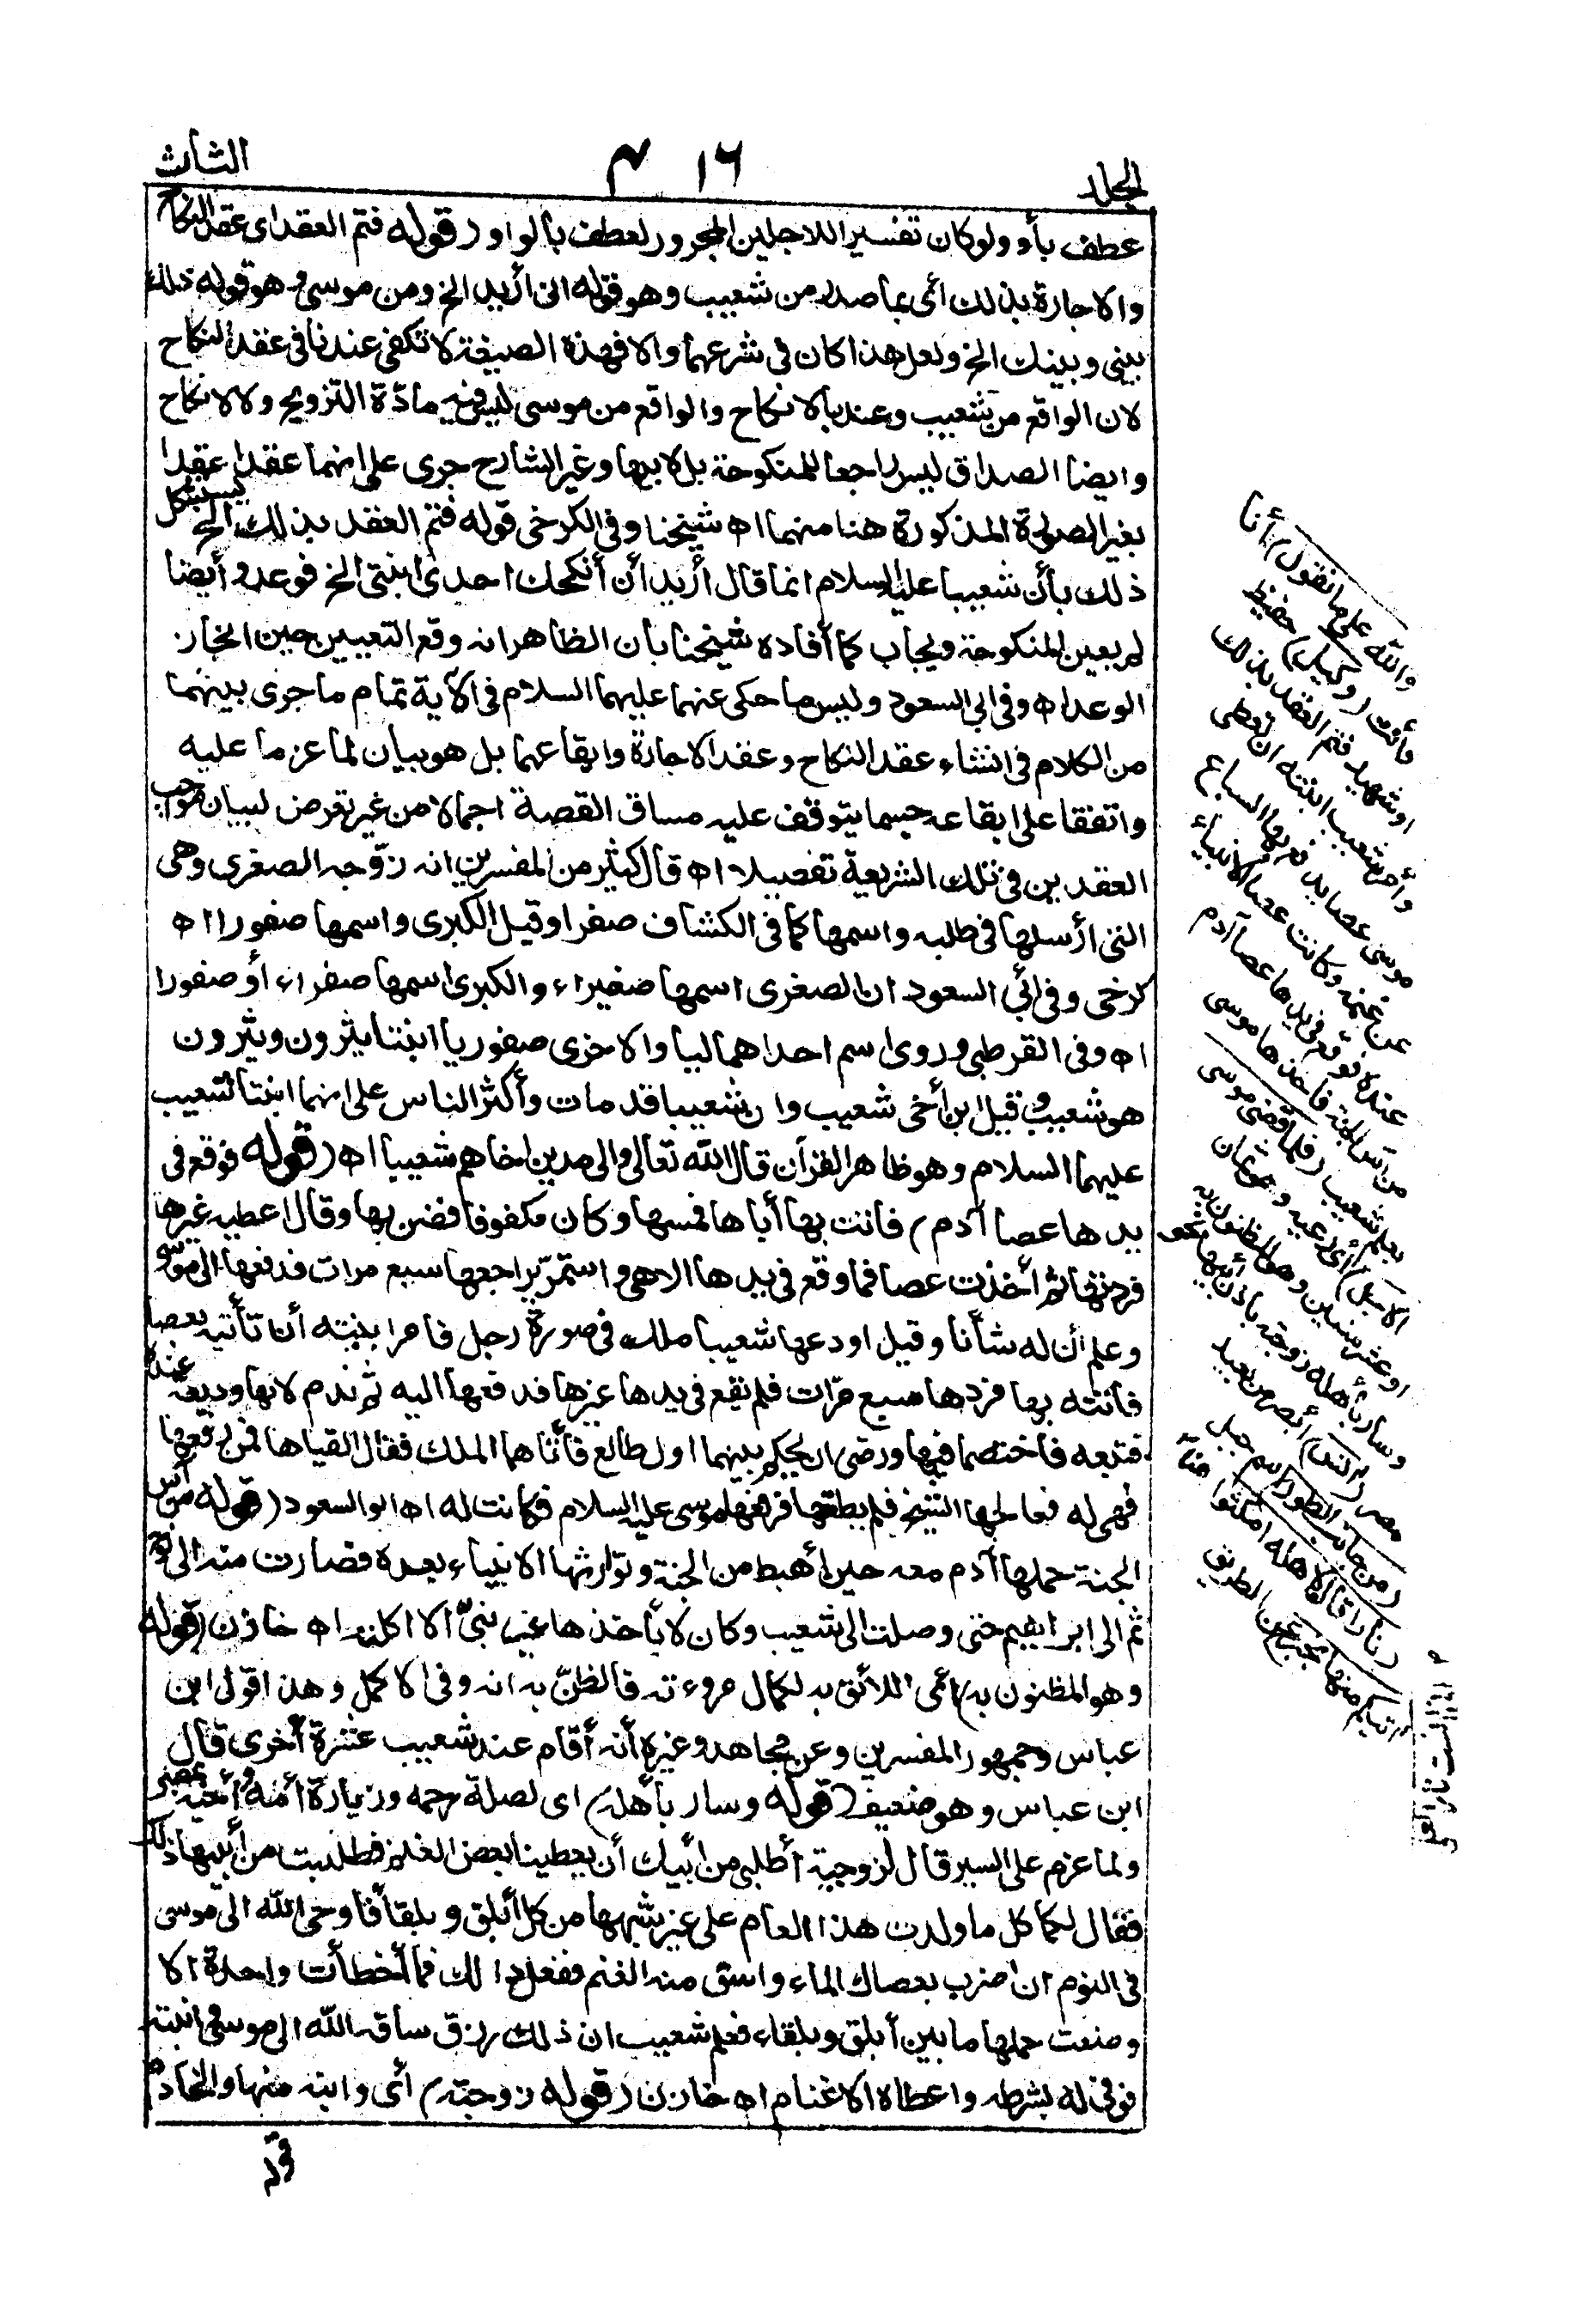 الجلد
١٦
الثالث
عطف بأو ولو كان تفسيرا للاجلين المجرور لعطف بالواو (قوله فتم العقد اى عقد النكاح
والاجارة بذلك أى بما صدر من شعيب وهو قوله انى أريد الخ ومن موسى وهو قوله ذلك
بينى وبينك الخ ولعل هذا كان فى شرعهما والا فهذة الصيغة لا تكفى عندنا فى عقد النكاح
لان الواقع من شعيب وعد بالانكاح والواقع من موسى ليس فيه مادّة التزويج ولا الانكاح
وايضا الصداق ليس راجعا للمنكوحة بل لابيها وغير الشارح جرى على انهما عقدا عقدا
بغير الصورة المذكورة هنا منهما اه شيخنا وفى الكرخى قوله فتم العقد بذلك الخ يستشكل
ذلك بأن شعيبا عليه السلام انما قال أريد أن أنكحك احدى ابنتى الخ فوعد وأيضا
لم يعين المنكوحة ويجاب كما أفاده شيخنا بان الظاهر انه وقع التعيين حين انجاز
الوعد اه وفى ابي السعود وليس ما حكى عنهما عليهما السلام فى الآية تمام ما جرى بينهما
من الكلام فى انشاء عقد النكاح وعقد الاجارة وايقاعهما بل هو بيان لما عزما عليه
واتفقا على ايقاعه حسبما يتوقف عليه مساق القصة اجمالا من غير تعرض لبيان موجب
العقدين فى تلك الشريعة تفصيلا اه قال كثير من المفسرين انه زوّجه الصغرى وهى
التى ارسلها فى طلبه واسمها كما فى الكشاف صفرا وقيل الكبرى واسمها صفورا اه
كرخى وفى أبي السعود ان الصغرى اسمها صفيراء والكبرى اسمها صفراء أو صفورا
اه وفى القرطبى وروى اسم احداهما ليا والاخرى صفوريا ابنتا يثرون ويثرون
هو شعيب وقيل ابن أخى شعيب وان شعيبا قد مات وأكثر الناس على انهما ابنتا لشعيب
عليهما السلام وهو ظاهر القرآن قال الله تعالى والى مدين اخاهم شعيبا اه (قوله فوقع فى
يدها عصا آدم) فاتت بها أباها فمسها وكان مكفوفا فضن بها وقال اعطيه غيرها
فردتها ثم أخذت عصا فما وقع فى يدها الا هى واستمرّ يراجعها سبع مرات فدفعها الى موسى
وعلم أن له شأنا وقيل اودعها شعيبا ملك فى صورة رجل فامر ابنته أن تأتيه بعصا
فاتته بها فردها سبع مرّات فلم يقع فى يدها غيرها فدفعها اليه ثم ندم لانها وديعة عنده
فتبعه فاختصما فيها ورضى ان يحكم بينهما اول طالع فأتاهما الملك فقال القياها فمن رفعها
فهى له فعالجها الشيخ فلم يطقها فرفعها موسى عليه السلام فكانت له اه ابو السعود (قوله من آس
الجنة حملها آدم معه حين أهبط من الجنة وتوارثها الانبياء بعده فصارت منه الى نوح
ثم الى ابراهيم حتى وصلت الى شعيب وكان لا يأخذها غير نبىّ الا اكلته اه خازن (قوله
وهو المظنون به) أى اللائق به لكمال مروءته فالظنّ به انه وفى الاكمل وهذا قول ابن
عباس وجمهور المفسرين وعن مجاهد وغيره أنه أقام عند شعيب عشرة أخرى قال
ابن عباس وهو ضعيف (قوله وسار بأهله) اى لصلة رحمه وزيارة أمه وأخيه بمصر
ولما عزم على السير قال لزوجته أطلبى من أبيك أن يعطينا بعض الغنم فطلبت من أبيها ذلك
فقال لكما كل ما ولدت هذا العام على غير شبهها من كل أبلق وبلقا فاوحى الله الى موسى
فى النوم ان اضرب بعصاك الماء واسق منه الغنم ففعل ذالك فما أخطأت واحدة الا
وضعت حملها ما بين أبلق وبلقاء فعلم شعيب ان ذلك رزق ساقه الله الى موسى وابنته
فوفى له بشرطه واعطاه الاغنام اه خازن (قوله زوجته) أى وابنه منها والخادم
والله على ما نقول) أنا
وأنت (وكيل) حفيظ
او شهيد فتم العقد بذلك
وأمر شعيب ابنته ان تعطى
موسى عصا يدفع بها السباع
عن غنمه وكانت عصا الانبياء
عنده فوقع فى يدها عصا آدم
من آس الجنة فاخذها موسى
بعلم شعيب (فلما قضى موسى
الاجل) أى رعيه وهو ثمان
او عشر سنين وهو المظنون به
وسار بأهله زوجته باذن أبيها نحو
مصر (آنس) أبصر من بعيد
(من جانب الطور) اسم جبل
(نارا قال لاهله امكثوا هنا
آتيكم منها بخبر عن الطريق